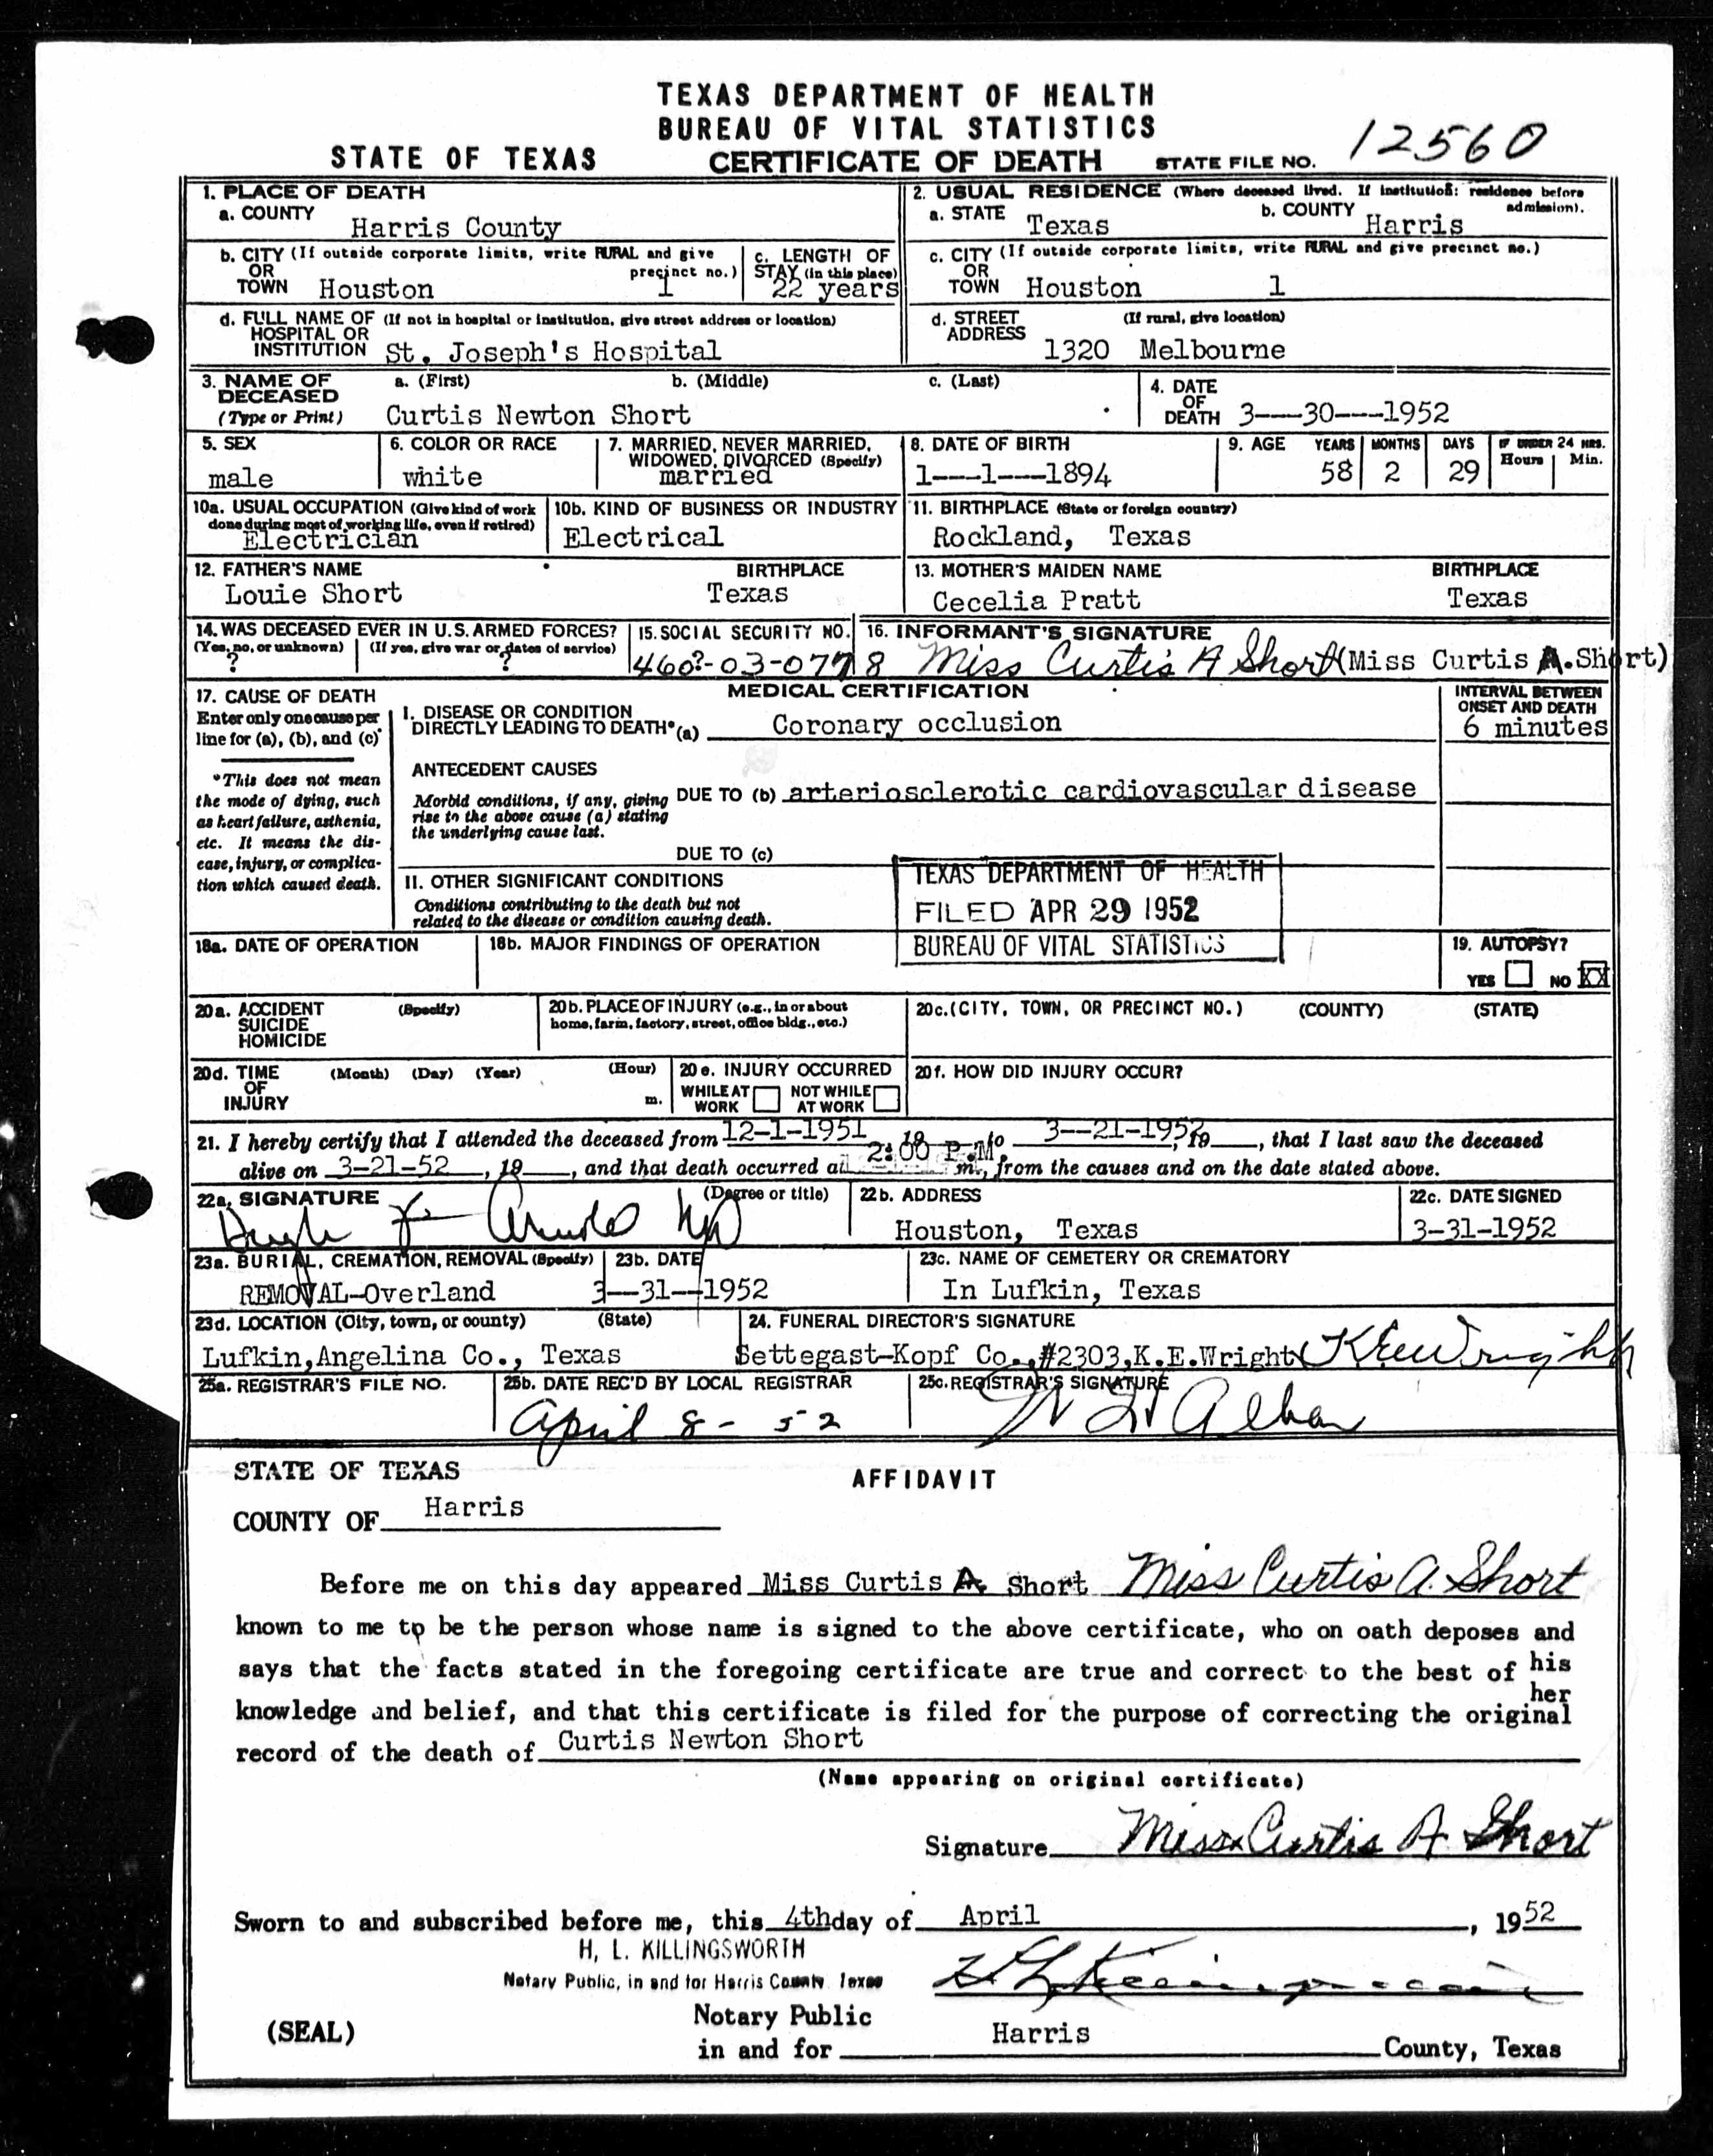 TEXAS DEPARTMENT OF HEALTH
BUREAU OF VITAL STATISTICS
STATE OF TEXAS CERTIFICATE OF DEATH STATE FILE NO. 12560
1. PLACE OF DEATH
a. COUNTY Harris County
2. USUAL RESIDENCE (Where deceased lived. If institution: residence before admission).
a. STATE Texas b. COUNTY Harris
b. CITY (If outside corporate limits, write RURAL and give precinct no.)
OR TOWN Houston 1
c. LENGTH OF STAY (in this place) 22 years
c. CITY (If outside corporate limits, write RURAL and give precinct no.)
OR TOWN Houston 1
d. FULL NAME OF (If not in hospital or institution, give street address or location)
HOSPITAL OR INSTITUTION St. Joseph's Hospital
d. STREET ADDRESS (If rural, give location)
1320 Melbourne
3. NAME OF DECEASED (Type or Print) a. (First) b. (Middle) c. (Last)
Curtis Newton Short
4. DATE OF DEATH 3---30---1952
5. SEX male
6. COLOR OR RACE white
7. MARRIED, NEVER MARRIED, WIDOWED, DIVORCED (Specify) married
8. DATE OF BIRTH 1---1---1894
9. AGE YEARS 58 MONTHS 2 DAYS 29 IF UNDER 24 HRS. Hours Min.
10a. USUAL OCCUPATION (Give kind of work done during most of working life, even if retired)
Electrician
10b. KIND OF BUSINESS OR INDUSTRY
Electrical
11. BIRTHPLACE (State or foreign country)
Rockland, Texas
12. FATHER'S NAME BIRTHPLACE
Louie Short Texas
13. MOTHER'S MAIDEN NAME BIRTHPLACE
Cecelia Pratt Texas
14. WAS DECEASED EVER IN U.S. ARMED FORCES?
(Yes, no, or unknown) (If yes, give war or dates of service)
? ?
15. SOCIAL SECURITY NO.
460?-03-0778
16. INFORMANT'S SIGNATURE
Miss Curtis A Short (Miss Curtis A. Short)
17. CAUSE OF DEATH
Enter only one cause per line for (a), (b), and (c)
*This does not mean the mode of dying, such as heart failure, asthenia, etc. It means the disease, injury, or complication which caused death.
MEDICAL CERTIFICATION
I. DISEASE OR CONDITION DIRECTLY LEADING TO DEATH* (a) Coronary occlusion
INTERVAL BETWEEN ONSET AND DEATH
6 minutes
ANTECEDENT CAUSES
Morbid conditions, if any, giving rise to the above cause (a) stating the underlying cause last.
DUE TO (b) arteriosclerotic cardiovascular disease
DUE TO (c)
II. OTHER SIGNIFICANT CONDITIONS
Conditions contributing to the death but not related to the disease or condition causing death.
TEXAS DEPARTMENT OF HEALTH
FILED APR 29 1952
BUREAU OF VITAL STATISTICS
18a. DATE OF OPERATION
18b. MAJOR FINDINGS OF OPERATION
19. AUTOPSY?
YES NO XX
20a. ACCIDENT SUICIDE HOMICIDE (Specify)
20b. PLACE OF INJURY (e.g., in or about home, farm, factory, street, office bldg., etc.)
20c. (CITY, TOWN, OR PRECINCT NO.) (COUNTY) (STATE)
20d. TIME OF INJURY (Month) (Day) (Year) (Hour) m.
20e. INJURY OCCURRED
WHILE AT WORK NOT WHILE AT WORK
20f. HOW DID INJURY OCCUR?
21. I hereby certify that I attended the deceased from 12-1-1951, 19 to 3--21-1952, 19, that I last saw the deceased
alive on 3-21-52, 19, and that death occurred at 2:00 P.M. m., from the causes and on the date stated above.
22a. SIGNATURE (Degree or title)
22b. ADDRESS
Houston, Texas
22c. DATE SIGNED
3-31-1952
23a. BURIAL, CREMATION, REMOVAL (Specify)
REMOVAL-Overland
23b. DATE
3--31--1952
23c. NAME OF CEMETERY OR CREMATORY
In Lufkin, Texas
23d. LOCATION (City, town, or county) (State)
Lufkin, Angelina Co., Texas
24. FUNERAL DIRECTOR'S SIGNATURE
Settegast-Kopf Co., #2303, K.E.Wright K E Wright
25a. REGISTRAR'S FILE NO.
25b. DATE REC'D BY LOCAL REGISTRAR
April 8 - 52
25c. REGISTRAR'S SIGNATURE
STATE OF TEXAS
AFFIDAVIT
COUNTY OF Harris
Before me on this day appeared Miss Curtis A. Short Miss Curtis A. Short
known to me to be the person whose name is signed to the above certificate, who on oath deposes and
says that the facts stated in the foregoing certificate are true and correct to the best of his
her
knowledge and belief, and that this certificate is filed for the purpose of correcting the original
record of the death of Curtis Newton Short
(Name appearing on original certificate)
Signature Miss Curtis A Short
Sworn to and subscribed before me, this 4th day of April, 1952
H. L. KILLINGSWORTH
Notary Public, in and for Harris County Texas
Notary Public
(SEAL)
in and for Harris County, Texas